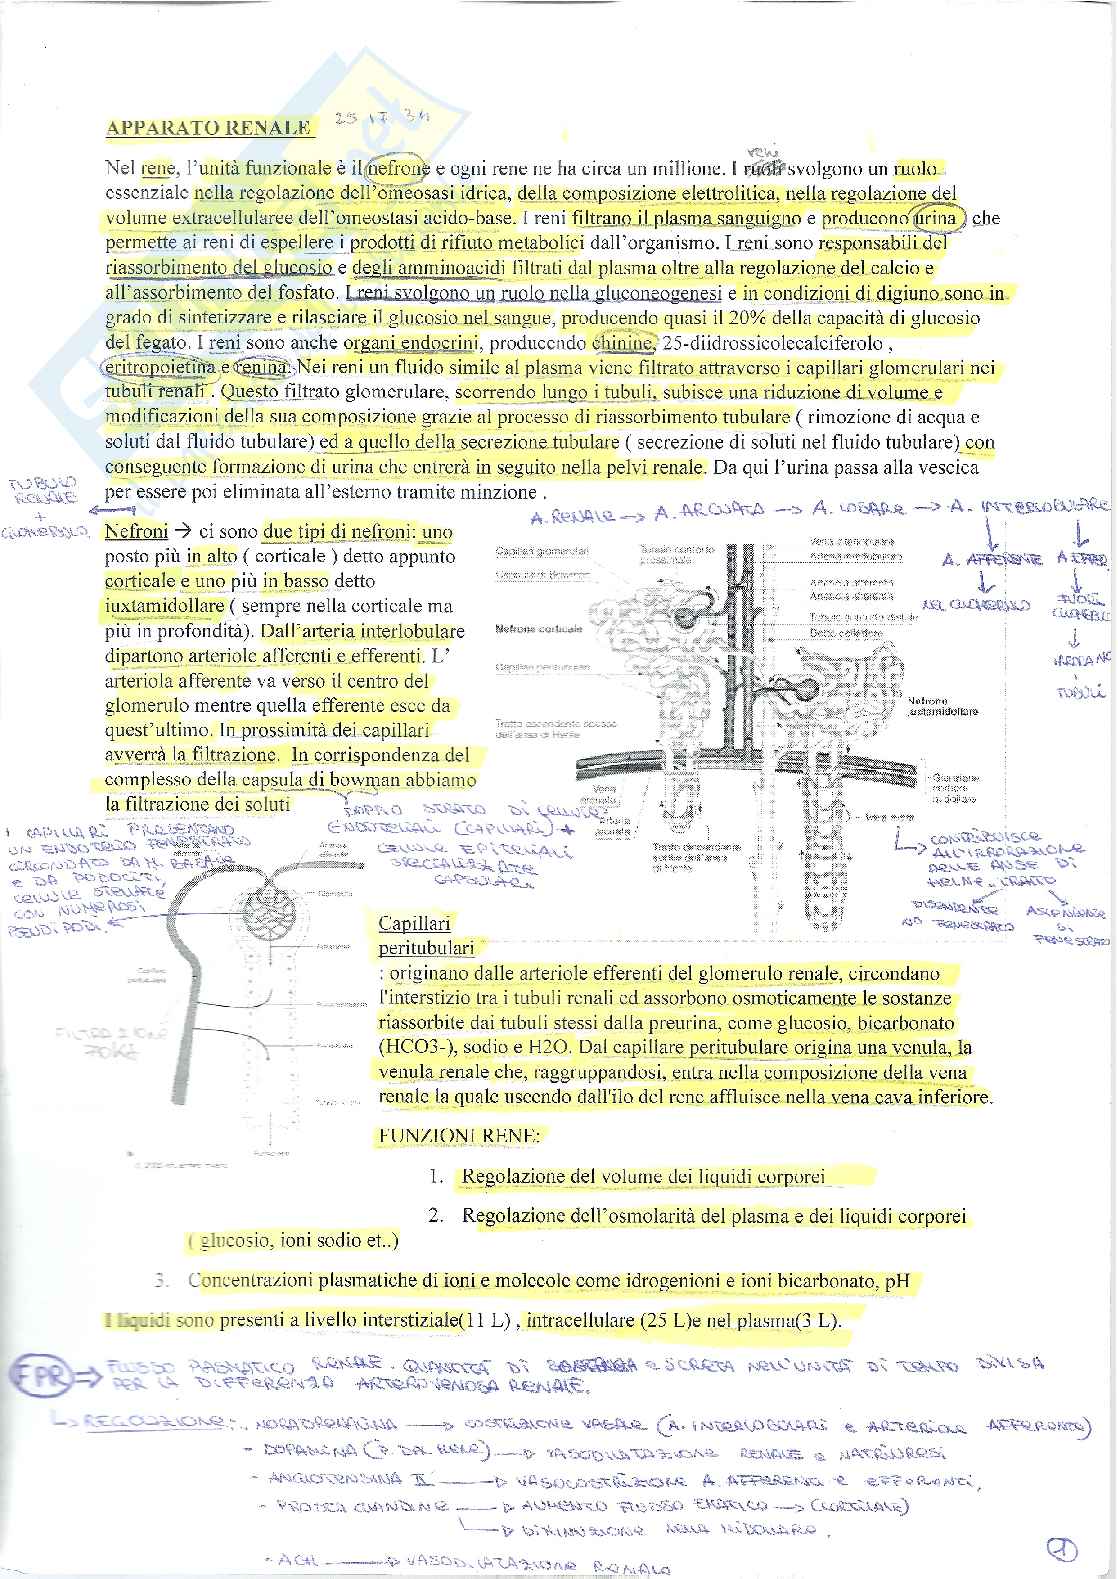 APPARATO RENALE
Nel rene, l'unità funzionale è il nefrone e ogni rene ne ha circa un millione. I ruoli svolgono un ruolo
reni
essenziale nella regolazione dell'omeosasi idrica, della composizione elettrolitica, nella regolazione del
volume extracellularee dell'omeostasi acido-base. I reni filtrano il plasma sanguigno e producono urina, che
permette ai reni di espellere i prodotti di rifiuto metabolici dall'organismo. I reni sono responsabili del
riassorbimento del glucosio e degli amminoacidi filtrati dal plasma oltre alla regolazione del calcio e
all'assorbimento del fosfato. I reni svolgono un ruolo nella gluconeogenesi e in condizioni di digiuno sono in
grado di sintetizzare e rilasciare il glucosio nel sangue, producendo quasi il 20% della capacità di glucosio
del fegato. I reni sono anche organi endocrini, producendo chinine, 25-diidrossicolecalciferolo ,
eritropoietina e renina. Nei reni un fluido simile al plasma viene filtrato attraverso i capillari glomerulari nei
tubuli renali . Questo filtrato glomerulare, scorrendo lungo i tubuli, subisce una riduzione di volume e
modificazioni della sua composizione grazie al processo di riassorbimento tubulare ( rimozione di acqua e
soluti dal fluido tubulare) ed a quello della secrezione tubulare ( secrezione di soluti nel fluido tubulare) con
conseguente formazione di urina che entrerà in seguito nella pelvi renale. Da qui l'urina passa alla vescica
per essere poi eliminata all'esterno tramite minzione .
TUBULO
RENALE
+
GLOMERULO
A. RENALE → A. ARCUATA → A. LOBARE → A. INTERLOBULARE
A. AFFERENTE
NEL GLOMERULO
TUBULI
Nefroni → ci sono due tipi di nefroni: uno
posto più in alto ( corticale ) detto appunto
corticale e uno più in basso detto
iuxtamidollare ( sempre nella corticale ma
più in profondità). Dall'arteria interlobulare
dipartono arteriole afferenti e efferenti. L'
arteriola afferente va verso il centro del
glomerulo mentre quella efferente esce da
quest'ultimo. In prossimità dei capillari
avverrà la filtrazione. In corrispondenza del
complesso della capsula di bowman abbiamo
la filtrazione dei soluti
Capillari glomerulari
Nefrone corticale
Tratto ascendente spesso
dell'ansa di Henle
Dotto collettore
Nefrone
iuxtamidollare
Vena
arcuata
Arteria
arcuata
Tratto discendente
DOPPIO STRATO DI CELLULE
ENDOTELIALI (CAPILLARI) +
CELLULE EPITELIALI
SPECIALIZZATE
CAPSULARI
I CAPILLARI PRESENTANO
UN ENDOTELIO FENESTRATO
CIRCONDATO DA M. BASALE
E DA PODOCITI,
CELLULE STELLATE
CON NUMEROSI
PSEUDIPODI.
CONTRIBUISCE
ALL'IRRORAZIONE
DELLE ANSE DI
HELNE. TRATTO
DISCENDENTE
NO FENESTRATO
ASCENDENTE
FENESTRATO
FILTRAZIONE
Capillari
peritubulari
: originano dalle arteriole efferenti del glomerulo renale, circondano
l'interstizio tra i tubuli renali ed assorbono osmoticamente le sostanze
riassorbite dai tubuli stessi dalla preurina, come glucosio, bicarbonato
(HCO3-), sodio e H2O. Dal capillare peritubulare origina una venula, la
venula renale che, raggruppandosi, entra nella composizione della vena
renale la quale uscendo dall'ilo del rene affluisce nella vena cava inferiore.
FUNZIONI RENE:
1. Regolazione del volume dei liquidi corporei
2. Regolazione dell'osmolarità del plasma e dei liquidi corporei
( glucosio, ioni sodio et..)
3. Concentrazioni plasmatiche di ioni e molecole come idrogenioni e ioni bicarbonato, pH
I liquidi sono presenti a livello interstiziale(11 L) , intracellulare (25 L)e nel plasma(3 L).
FPR ⇒ FLUSSO PLASMATICO RENALE. QUANTITÀ DI SOSTANZA ESCRETA NELL'UNITÀ DI TEMPO DIVISA
PER LA DIFFERENZA ARTEROVENOSA RENALE.
REGOLAZIONE: - NORADRENALINA → COSTRIZIONE VASALE (A. INTERLOBULARI E ARTERIOLE AFFERENTI)
- DOPAMINA → VASODILATAZIONE RENALE E NATRIURESI
- ANGIOTENSINA II → VASOCOSTRIZIONE A. AFFERENTI E EFFERENTI,
- PROSTAGLANDINE → AUMENTO FLUSSO EMATICO → (CORTICALE)
→ DIMINUZIONE NELLA MIDOLLARE.
- ACH → VASODILATAZIONE RENALE
1